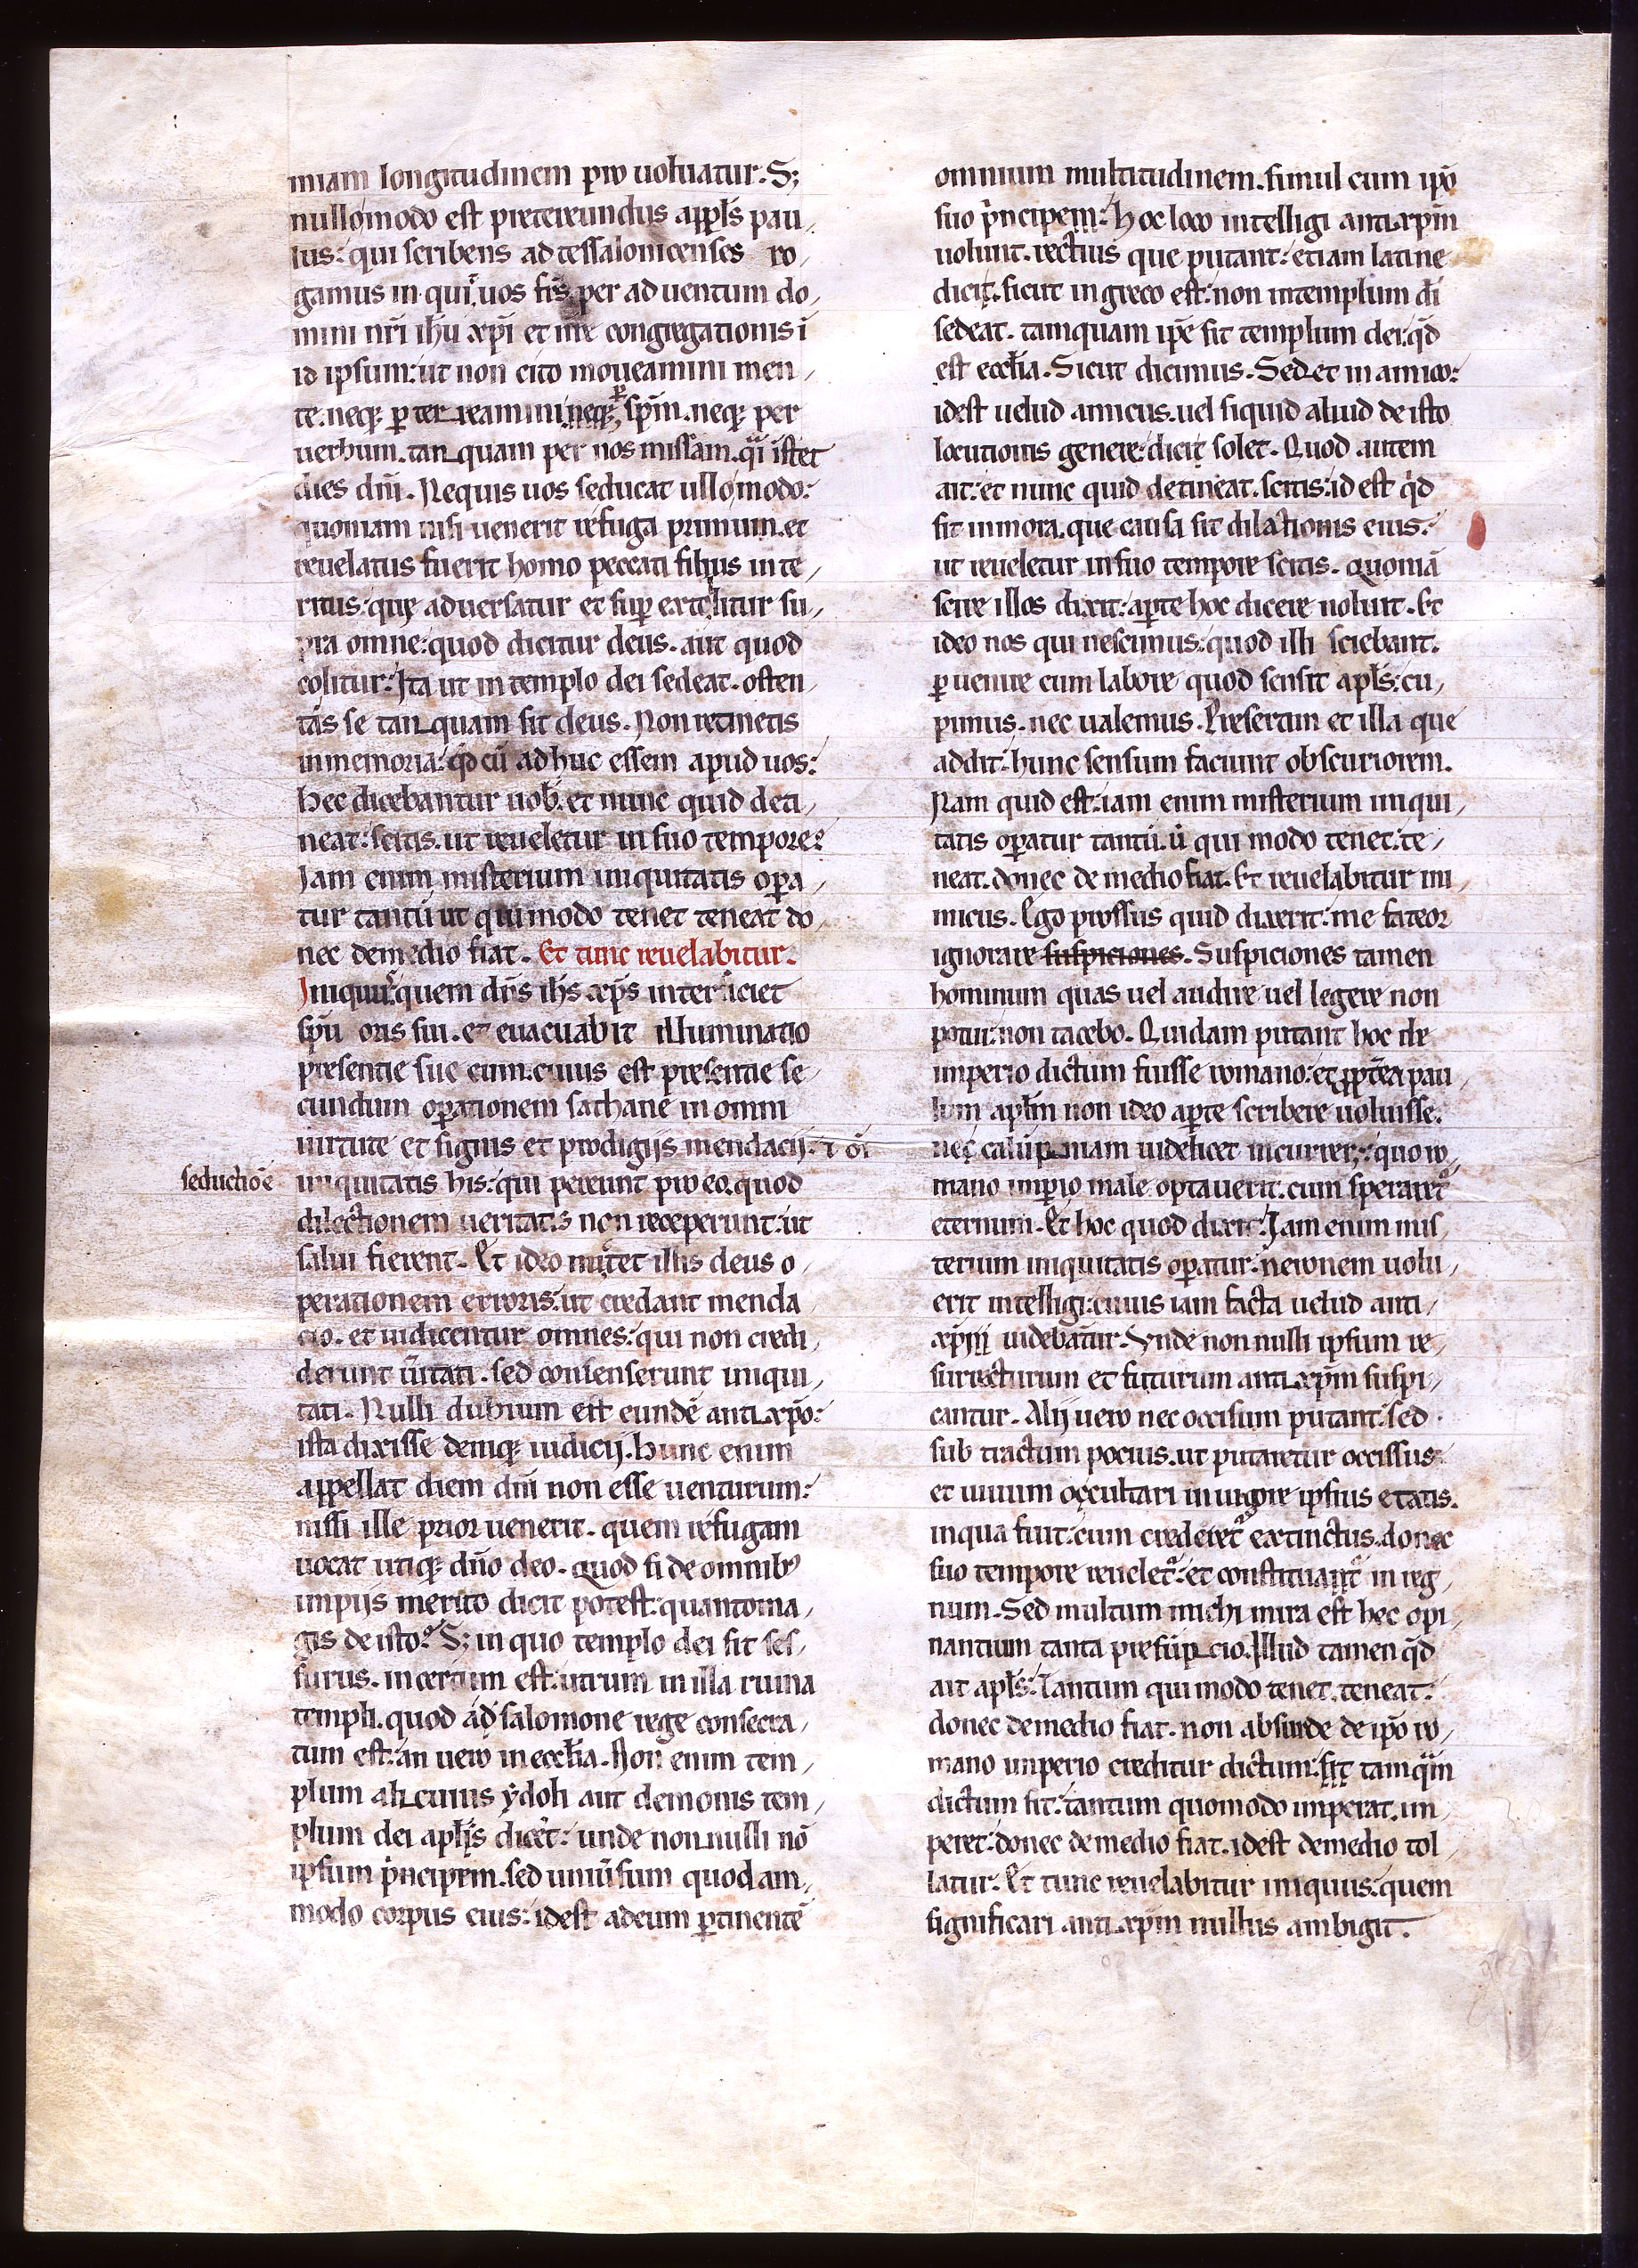 miam longitudinem pro uoluatur. S;
nullomodo est pretereundus appl̄s pau,
lus: qui scribens ad tessalonicenses ro,
gamus in qui uos fr̄s per aduentum do,
mini nr̄i ih̄u xp̄i et nr̄e congregationis ī
id ipsum: ut non cito moueamini men,
te: neq; ꝑterreamini neq; ꝑ sp̄m. neq; per
uerbum. tanquam per nos missam. q̄i īstet
dies dn̄i. Nequis uos seducat ullomodo:
quoniam nisi uenerit refuga primum. et
reuelatus fuerit homo peccati filius inte,
ritus: quę aduersatur et suꝑ extollitur su,
pra omne: quod dicitur deus. aut quod
colitur: Ita ut in templo dei sedeat. osten,
tās se tanquam sit deus. Non retinetis
inmemoriā: qd̄ cū adhuc essem apud uos:
hec dicebantur uob̄. et nunc quid deti,
neat: scitis. ut reueletur in suo tempore:
Iam enim misterium iniquitatis oꝑa,
tur tantū ut qui modo tenet teneat do,
nec demedio fiat. Et tunc reuelabitur.
Iniquus quem dn̄s ih̄s xp̄s interficiet
sp̄u oris sui. et euacuabit illuminatio
presentie sue eum. cuius est presentie se,
cundum oꝑationem sathane in omni
uirtute et signis et prodigijs mendacij. ⁊ oī
seductiōē
iniquitatis his: qui pereunt pro eo. quod
dilectionem ueritatis non receperunt: ut
salui fierent. Et ideo mittet illis deus o,
perationem erroris: ut credant menda
cio. et iudicentur omnes: qui non credi,
derunt ūitati. sed consenserunt iniqui,
tati. Nulli dubium est eundē antixp̄o:
ista dixisse demq; iudicij. Hunc enim
appellat diem dn̄i non esse uenturum:
nissi ille prior uenerit. quem refugam
uocat utiq; dn̄o deo. quod si de omnib;
impijs merito dicit potest: quantoma,
gis de isto? S; in quo templo dei sit ses,
surus. incertum est: utrum in illa ruina
templi. quod ad salomone rege consecra,
tum est: an uero inecclīa. Non enim tem,
plum alicuius ydoli aut demonis tem,
plum dei apl̄s dicet: unde nonnulli nō
ipsum p̄ncipem. sed uniūsum quodam,
modo corpus eius: idest adeum ꝑtinentē
omnium multitudinem. simul cum ipō
suo p̄ncipem: Hoc loco intelligi antixp̄m
uolunt. rectius que putant: etiam latine
dicit. sicut in greco est: non intemplum dī
sedeat. tamquam ipē sit templum dei: qd̄
est ecclīa. Sicut dicimus. Sedet in amico:
idest uelud amicus. uel siquid aluid de isto
locutionis genere: dicit solet. Quod autem
ait: et nunc quid detineat. scitis: id est qd̄
sit inmora. que causa sit dilationis eius:
ut reueletur insuo tempore scitis. quoniā
scire illos dixit: aꝑte hoc dicere noluit. Et
ideo nos qui nescimus: quod illi sciebant.
ꝑuenire cum labore quod sensit apl̄s: cu,
pimus. nec ualemus. Presertim et illa que
addit: hunc sensum faciunt obscuriorem.
Nam quid est: iam enim misterium iniqui,
tatis oꝑatur tantū. ū qui modo tenet: te,
neat. donec de medio fiat. Et reuelabitur ini,
micus. Ego prossus quid dixerit: me fateor
ignorare suspiciones. Suspiciones tamen
hominum quas uel audire uel legere non
potui: non tacebo. Quidam putant hoc de
imperio dictum fuisse romano: et ꝓpt̄ea pau,
lum apl̄m non ideo aꝑte scribere uoluisse.
nec calūpniam uidelicet incurrer;: quo ro,
mano imꝑio male optauerit. cum speraret̄
eternum. Et hoc quod dixit: Iam enim mis,
terium iniquitatis oꝑatur: neronem uolu,
erit intelligi: cuius iam facta uelud anti,
xp̄m uidebat̄ur. Vnde non nulli ipsum re,
surrecturum et futurum antixp̄m suspi,
cantur. Alij uero nec occisum putant: sed
subtractum pocius. ut putaretur occissus:
et uiuum occultari in uigore ipsius etatis.
inqua fuit: cum crederet̄ extinctus. donec
suo tempore reuelet̄: et constituatur in reg,
num. Sed multum michi mira est hec opi,
nantium tanta presūpcio. Illud tamen qd̄
ait apl̄s: Tantum qui modo tenet. teneat:
donec demedio fiat. non absurde de ipō ro,
mano imperio creditur dictum: sit tamq̄m
dictum sit. tantum quomodo imperat. im,
peret: donec demedio fiat. idest demedio tol,
latur. Et tunc reuelabitur iniquus: quem
significari antixp̄m nullus ambigit.